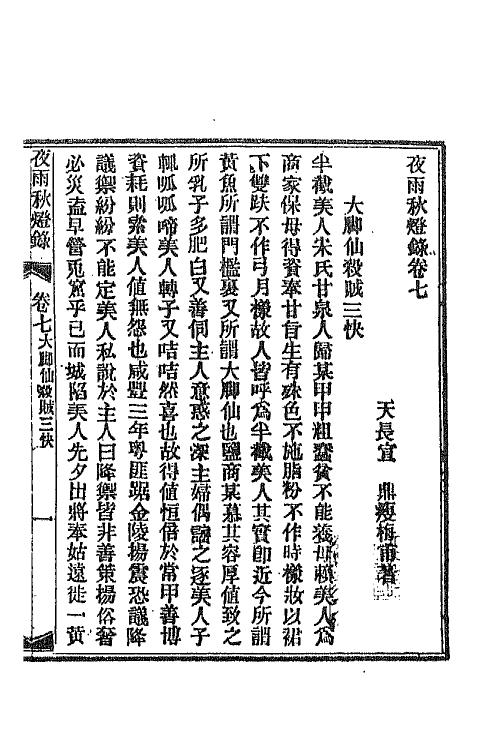 夜雨秋燈錄卷七
天長宣 鼎瘦梅甫著
大脚仙殺賊三快
半截美人朱氏甘泉人歸某甲甲粗蠢貧不能養母賴美人爲
商家保母得資奉甘旨生有殊色不施脂粉不作時樣妝以裙
下雙趺不作弓月樣故人皆呼爲半截美人其實卽近今所謂
黃魚所謂門檻裏又所謂大脚仙也鹽商某慕其容厚值致之
所乳子多肥白又善伺主人意惑之深主婦偶譴之逐美人子
輒呱呱啼美人轉子又咭咭然喜也故得値恒倍於常甲善博
資耗則索美人值無怨也咸豐三年粵匪踞金陵揚震恐議降
議禦紛紛不能定美人私說於主人曰降禦皆非善策揚俗奢
必災盍早營兎窟乎已而城陷美人先夕出將奉姑遠徙一黃
夜雨秋燈錄
卷七大脚仙殺賊三快
一